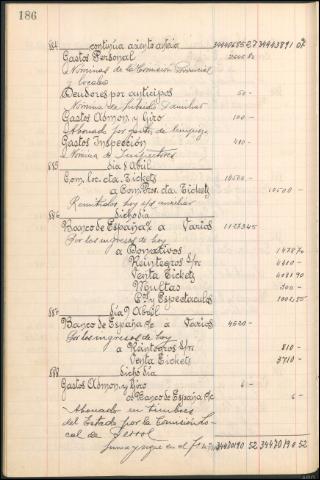 186
884 continúa asiento anterior 34440685 27 34443891 02
Gastos Personal
Nóminas de la Comisión Provincial
y locales
Deudores por anticipos 50 -
Nómina de Subsidio Familiar
Gastos Admon. y Giro 100 -
Abonado por gastos de limpieza
Gastos Inspección
Nómina de Inspectores
885 día 8 Abril
Com. loc. cta. Tickets 10500 -
a Com. Prov. cta. Tickets 10500 -
Remitidos hoy s/s auxiliar
886 dicho día
Banco de España c/c a Varios
Por los ingresos de hoy
a Donativos
Reintegros S/m
Venta Tickets
Multas
Cº y Espectáculos
887 día 9 Abril
Banco de España c/c a Varios 4520 -
Por los ingresos de hoy
a Reintegros S/m 810 -
Venta Tickets 3710 -
888 dicho día
Gastos Admon. y Giro 6 -
a Banco de España c/c 6 -
Abonado en timbres
del Estado por la Comisión Lo-
cal de Ferrol
Suma y sigue en el fº 34470190 52 34470190 52